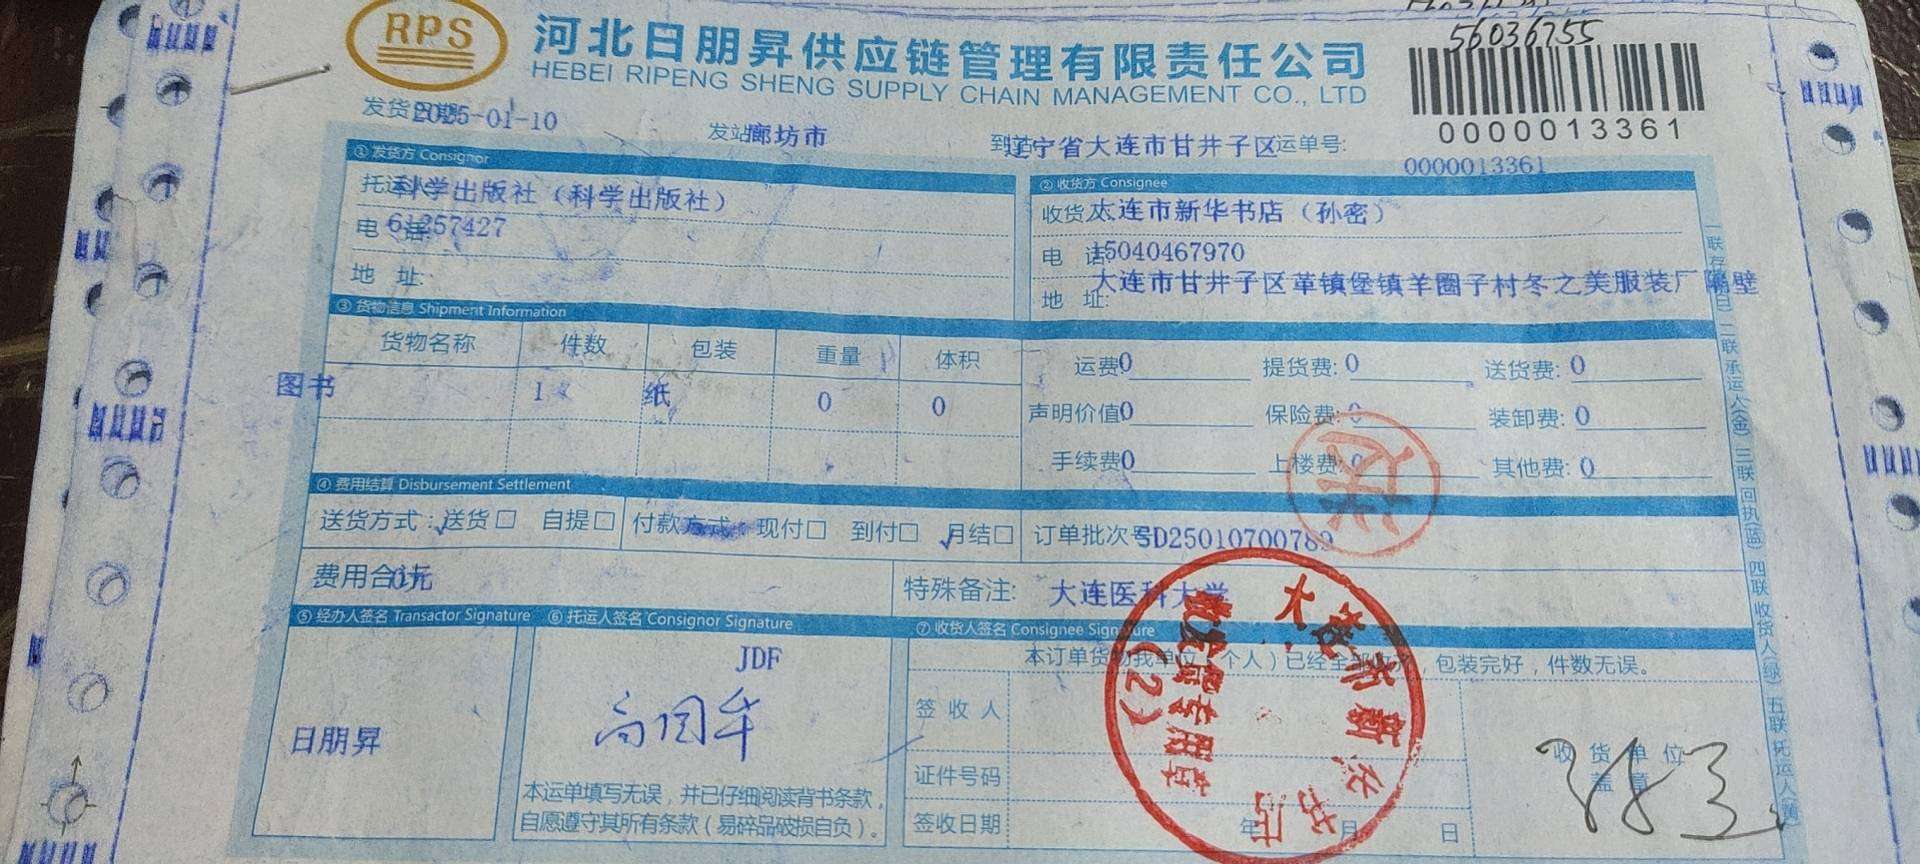 RPS
河北日朋昇供应链管理有限责任公司
HEBEI RIPENG SHENG SUPPLY CHAIN MANAGEMENT CO., LTD
56036755
0000013361
发货日期 2025-01-10
发站 廊坊市
到站 辽宁省大连市甘井子区 运单号: 0000013361
① 发货方 Consignor
托运人 科学出版社（科学出版社）
电 话: 61257427
地 址:
② 收货方 Consignee
收货人 大连市新华书店（孙密）
电 话 15040467970
地 址: 大连市甘井子区革镇堡镇羊圈子村冬之美服装厂隔壁
③ 货物信息 Shipment Information
货物名称 件数 包装 重量 体积
图书 1 纸 0 0
运费 0 提货费: 0 送货费: 0
声明价值 0 保险费: 0 装卸费: 0
手续费 0 上楼费: 0 其他费: 0
④ 费用结算 Disbursement Settlement
送货方式: ✓送货□ 自提□ 付款方式: 现付□ 到付□ ✓月结□ 订单批次号 SD25010700789
费用合计 0元
特殊备注: 大连医科大学
⑤ 经办人签名 Transactor Signature ⑥ 托运人签名 Consignor Signature ⑦ 收货人签名 Consignee Signature
日朋昇
JDF
本运单填写无误，并已仔细阅读背书条款，
自愿遵守其所有条款（易碎品破损自负）。
本订单货物我单位（个人）已经全部收齐，包装完好，件数无误。
签 收 人
证件号码
签收日期 年 月 日
收 货 单 位
盖 章
383
大连市新华书店
(2)
二联 承运人(金) 三联 回执(蓝) 四联 收货人(绿) 五联 托运人